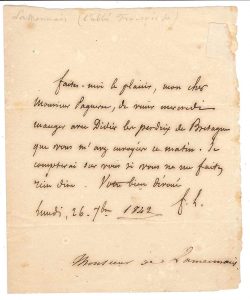 Lamennais (l'abbé François de)
faites-moi le plaisir, mon cher
Monsieur Paguerre, de venir mercredi
manger avec Didier les perdrix de Bretagne
que vous m'avez envoyées ce matin. Je
compterai sur vous si vous ne me faites
rien dire. Votre bien dévoué
lundi, 26 7bre 1842 F. L.
Monsieur de Lamennais